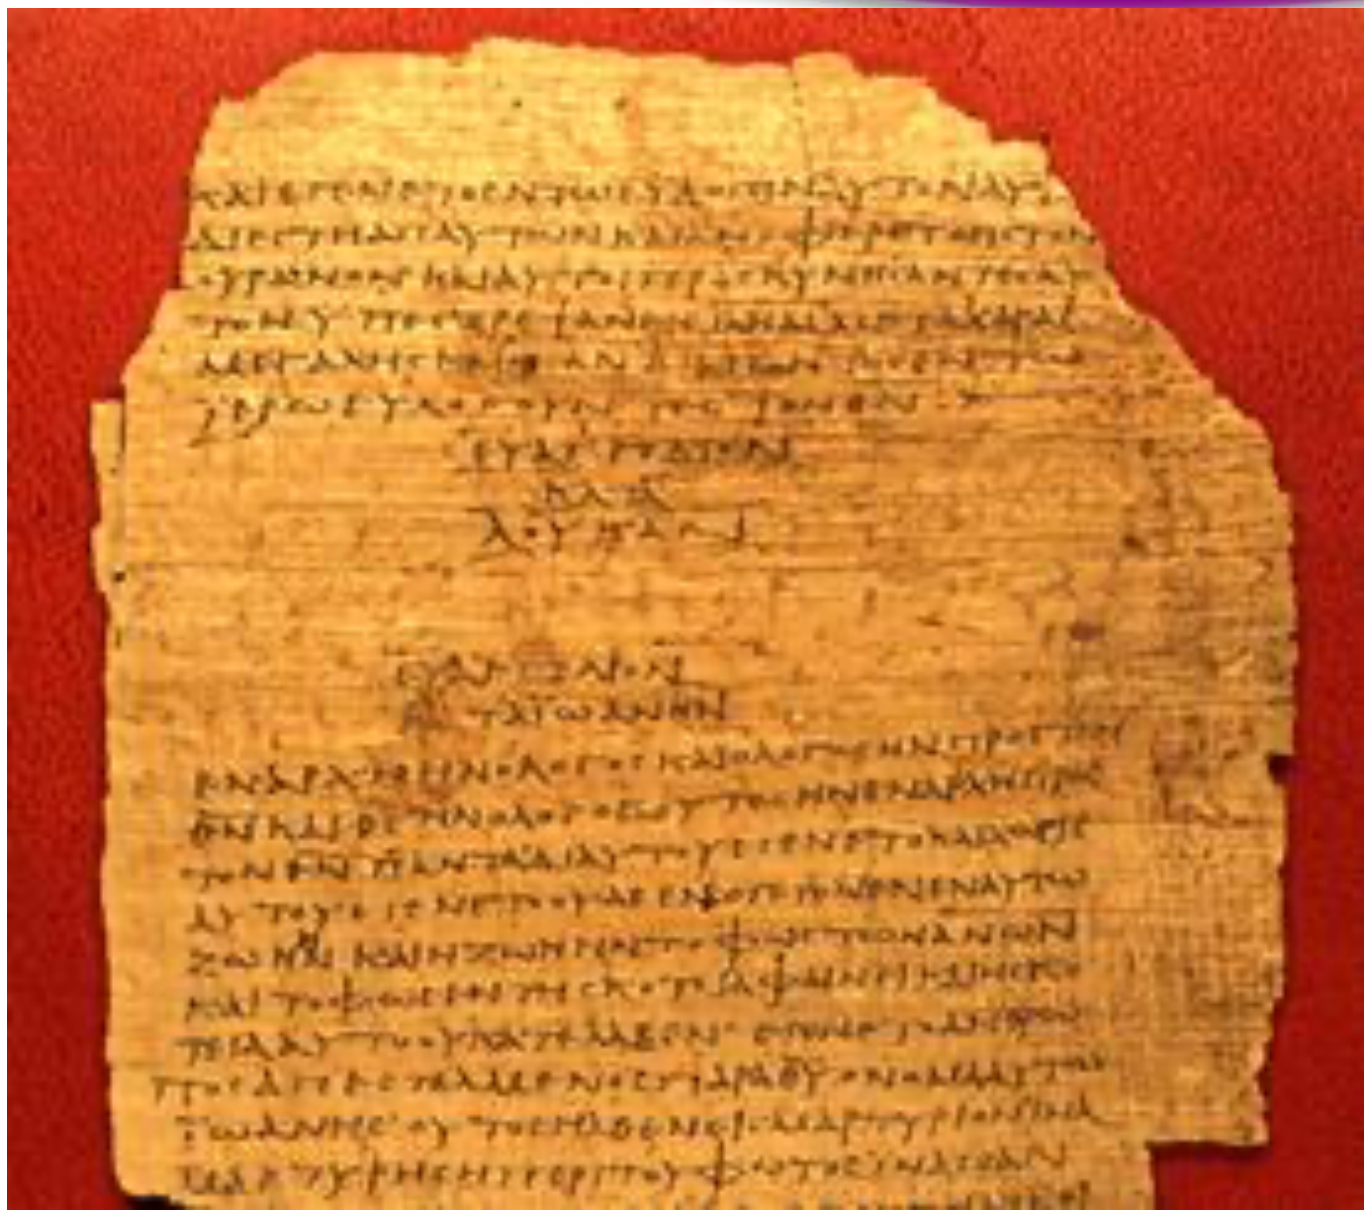 ΚΑΙΕΓΕΝΕΤΟΕΝΤΩΕΥΛΟΓΕΙΝΑΥΤΟΝΑΥΤΟΥ
ΔΙΕϹΤΗΑΠΑΥΤΩΝΚΑΙΑΝΕΦΕΡΕΤΟΕΙϹΤΟΝ
ΟΥΡΑΝΟΝΚΑΙΑΥΤΟΙΠΡΟϹΚΥΝΗϹΑΝΤΕϹΑΥ
ΤΟΝΥΠΕϹΤΡΕΨΑΝ ΧΑΡΑϹ
ΜΕΓΑΛΗϹΚΑΙΗϹΑΝ ΕΝΤΩ
ΙΕΡΩΕΥΛΟΓΟΥΝΤΕϹΤΟΝΘΝ
ΕΥΑΓΓΕΛΙΟΝ
ΚΑΤΑ
ΛΟΥΚΑΝ
ΕΥΑΓΓΕΛΙΟΝ
ΚΑΤΑΪΩΑΝΗΝ
ΕΝΑΡΧΗΗΝΟΛΟΓΟϹΚΑΙΟΛΟΓΟϹΗΝΠΡΟϹΤΟΝ
ΘΝΚΑΙΘϹΗΝΟΛΟΓΟϹΟΥΤΟϹΗΝΕΝΑΡΧΗΠΡΟϹ
ΤΟΝΘΝΠΑΝΤΑΔΙΑΥΤΟΥΕΓΕΝΕΤΟΚΑΙΧΩΡΙϹ
ΑΥΤΟΥΕΓΕΝΕΤΟΟΥΔΕΕΝ·ΟΓΕΓΟΝΕΝΕΝΑΥΤΩ
ΖΩΗΗΝΚΑΙΗΖΩΗΗΝΤΟΦΩϹΤΩΝΑΝΩΝ
ΚΑΙΤΟΦΩϹΕΝΤΗϹΚΟΤΙΑΦΑΙΝΕΙΚΑΙΗϹΚΟ
ΤΕΙΑΑΥΤΟΟΥΚΑΤΕΛΑΒΕΝ·ΕΓΕΝΕΤΟΑΝΘΡΩ
ΠΟϹΑΠΕϹΤΑΛΜΕΝΟϹΠΑΡΑΘΥΟΝΟΜΑΑΥΤΩ
ΪΩΑΝΗϹ·ΟΥΤΟϹΗΛΘΕΝΕΙϹΜΑΡΤΥΡΙΑΝΪΝΑ
ΜΑΡΤΥΡΗϹΗΠΕΡΙΤΟΥΦΩΤΟϹΪΝΑΠΑΝ